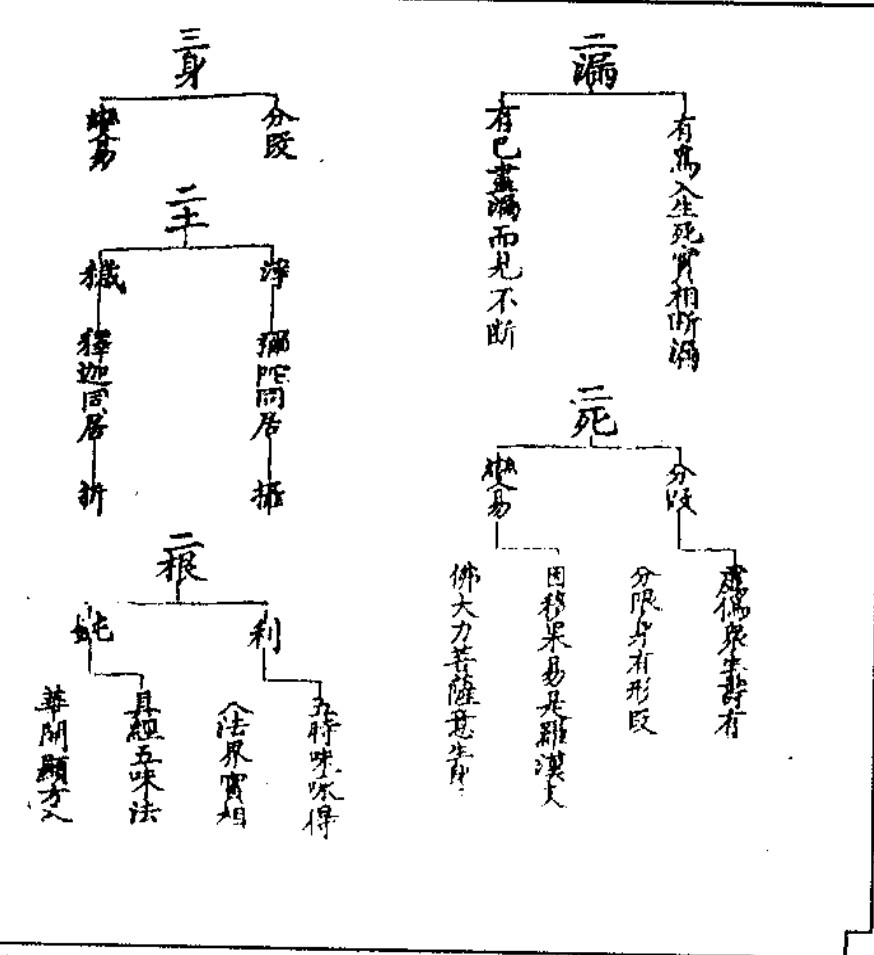 二漏
有為入生死實相斷漏
有已盡漏而見不斷
二死
分段
虛偽眾生壽有
分限身有形段
變易
因移果易是羅漢支
佛大力菩薩意生身
三身
分段
變易
二土
淨
彌陀同居
攝
穢
釋迦同居
折
二根
利
五時味味得
入法界實相
鈍
具經五味法
華開顯方入